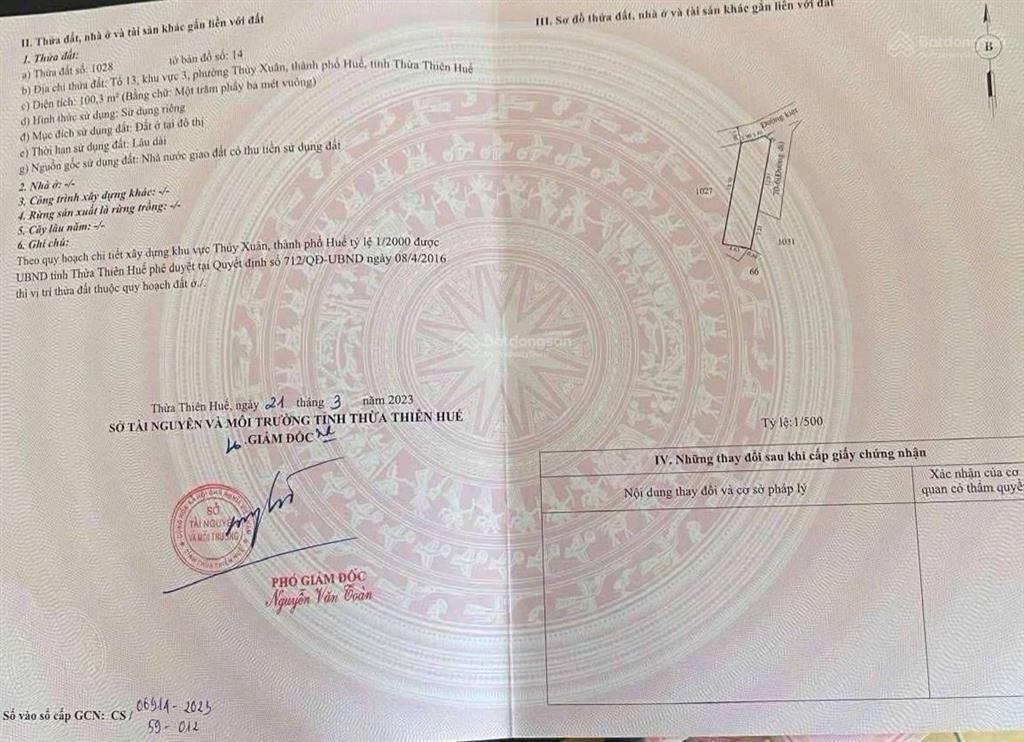 II. Thửa đất, nhà ở và tài sản khác gắn liền với đất
1. Thửa đất:
a) Thửa đất số: 1028 tờ bản đồ số: 14
b) Địa chỉ thửa đất: Tổ 13, khu vực 3, phường Thủy Xuân, thành phố Huế, tỉnh Thừa Thiên Huế
c) Diện tích: 100,3 m² (Bằng chữ: Một trăm phẩy ba mét vuông)
d) Hình thức sử dụng: Sử dụng riêng
đ) Mục đích sử dụng đất: Đất ở tại đô thị
e) Thời hạn sử dụng đất: Lâu dài
g) Nguồn gốc sử dụng đất: Nhà nước giao đất có thu tiền sử dụng đất
2. Nhà ở: -/-
3. Công trình xây dựng khác: -/-
4. Rừng sản xuất là rừng trồng: -/-
5. Cây lâu năm: -/-
6. Ghi chú:
Theo quy hoạch chi tiết xây dựng khu vực Thủy Xuân, thành phố Huế tỷ lệ 1/2000 được
UBND tỉnh Thừa Thiên Huế phê duyệt tại Quyết định số 712/QĐ-UBND ngày 08/4/2016
thì vị trí thửa đất thuộc quy hoạch đất ở./.
Thừa Thiên Huế, ngày 21 tháng 3 năm 2023
SỞ TÀI NGUYÊN VÀ MÔI TRƯỜNG TỈNH THỪA THIÊN HUẾ
GIÁM ĐỐC
SỞ
TÀI NGUYÊN
VÀ MÔI TRƯỜNG
TỈNH THỪA THIÊN HUẾ
PHÓ GIÁM ĐỐC
Nguyễn Văn Toàn
Số vào sổ cấp GCN: CS/ 06914 - 2023
59 - 012
III. Sơ đồ thửa đất, nhà ở và tài sản khác gắn liền với đất
Batdongsan
B
Đường kiệt
1027
1031
66
Batdongsan
Tỷ lệ: 1/500
IV. Những thay đổi sau khi cấp giấy chứng nhận
Nội dung thay đổi và cơ sở pháp lý
Xác nhận của cơ
quan có thẩm quyền